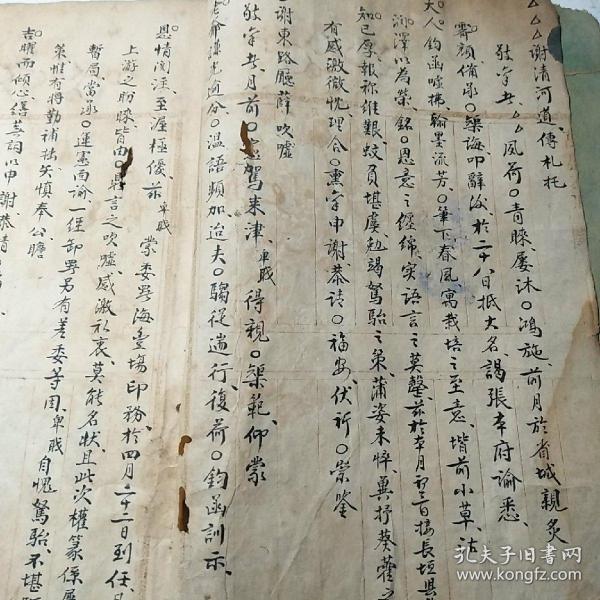 △△△謝清河道傅札托
敬字者△△夙荷○青睞屢沐○鴻施前月於省城親炙
霽顏備承○榘誨叩辭後於二十八日抵大名謁張本府諭悉
大人鈞函噓拂翰墨流芳○筆下春風寓栽培之至意堦前小草沾
潤澤以為榮銘○恩意之纏綿實語言之莫罄茲於本月初三日接長垣縣
知己厚報称維艱蚊負堪虞勉竭駑駘之策蒲姿未悴冀抒葵藿之
有感激微忱理合○熏字申謝恭請○福安伏祈○崇鑒
謝東路廳薛吹噓
敬字者月前○憲駕來津卑職得親○榘範仰蒙
老爺謙光逾分○溫語頻加迨夫○騶從遄行復荷○鈞函訓示
恩情周浹至渥極優茲卑職蒙委署海豐場印務於四月二十一日到任
上游之盼睞皆由○鼎言之吹噓感激私衷莫能名狀且此次權篆係屬
暫局當承○運憲面諭一經卸署另有差委等因卑職自愧駑駘不堪
策惟有將勤補拙矢慎奉公瞻
吉曜而傾心繕蕪詞以申謝恭請
孔夫子旧书网
www.kongfz.com